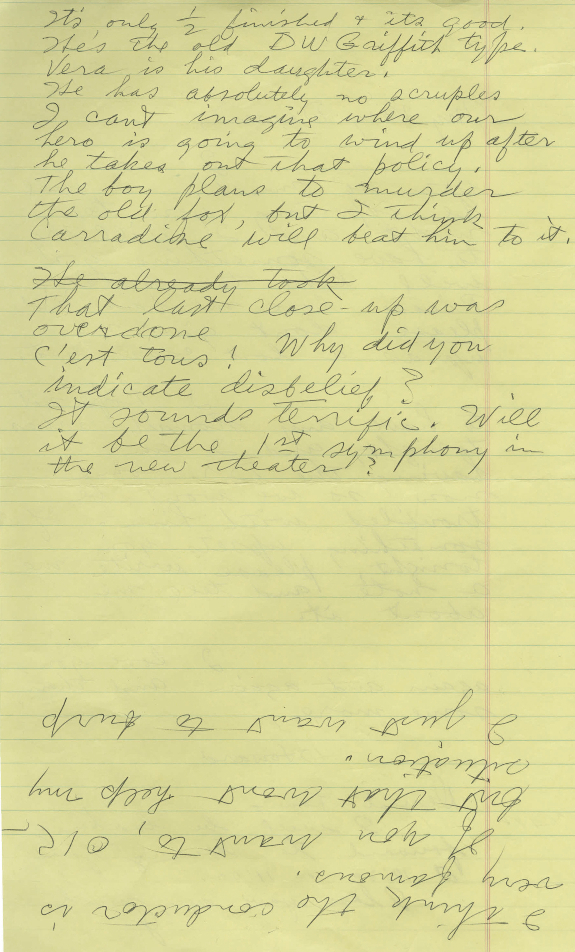 It's only 1/2 finished & its good.
He's the old DW Griffith type.
Vera is his daughter.
He has absolutely no scruples
I can't imagine where our
hero is going to wind up after
he takes out that policy.
The boy plans to murder
the old fox, but I think
Carradine will beat him to it.
He already took
That last close-up was
overdone
C'est tous! Why did you
indicate disbelief?
It sounds terrific. Will
it be the 1st symphony in
the new theater?
I think the conductor is
very famous.
If you want to, OK
but that wont help my
situation.
I just want to burp